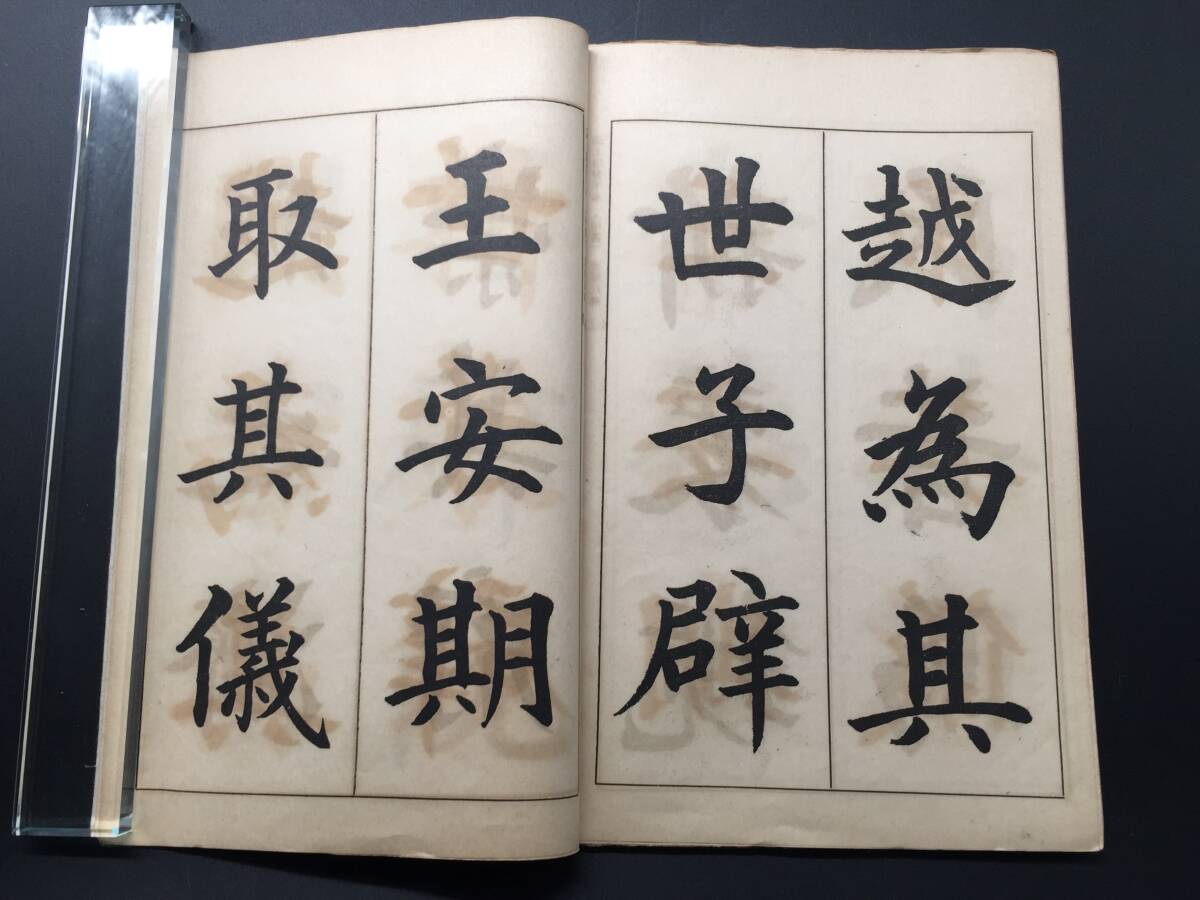 越為其
世子辟
王安期
取其儀